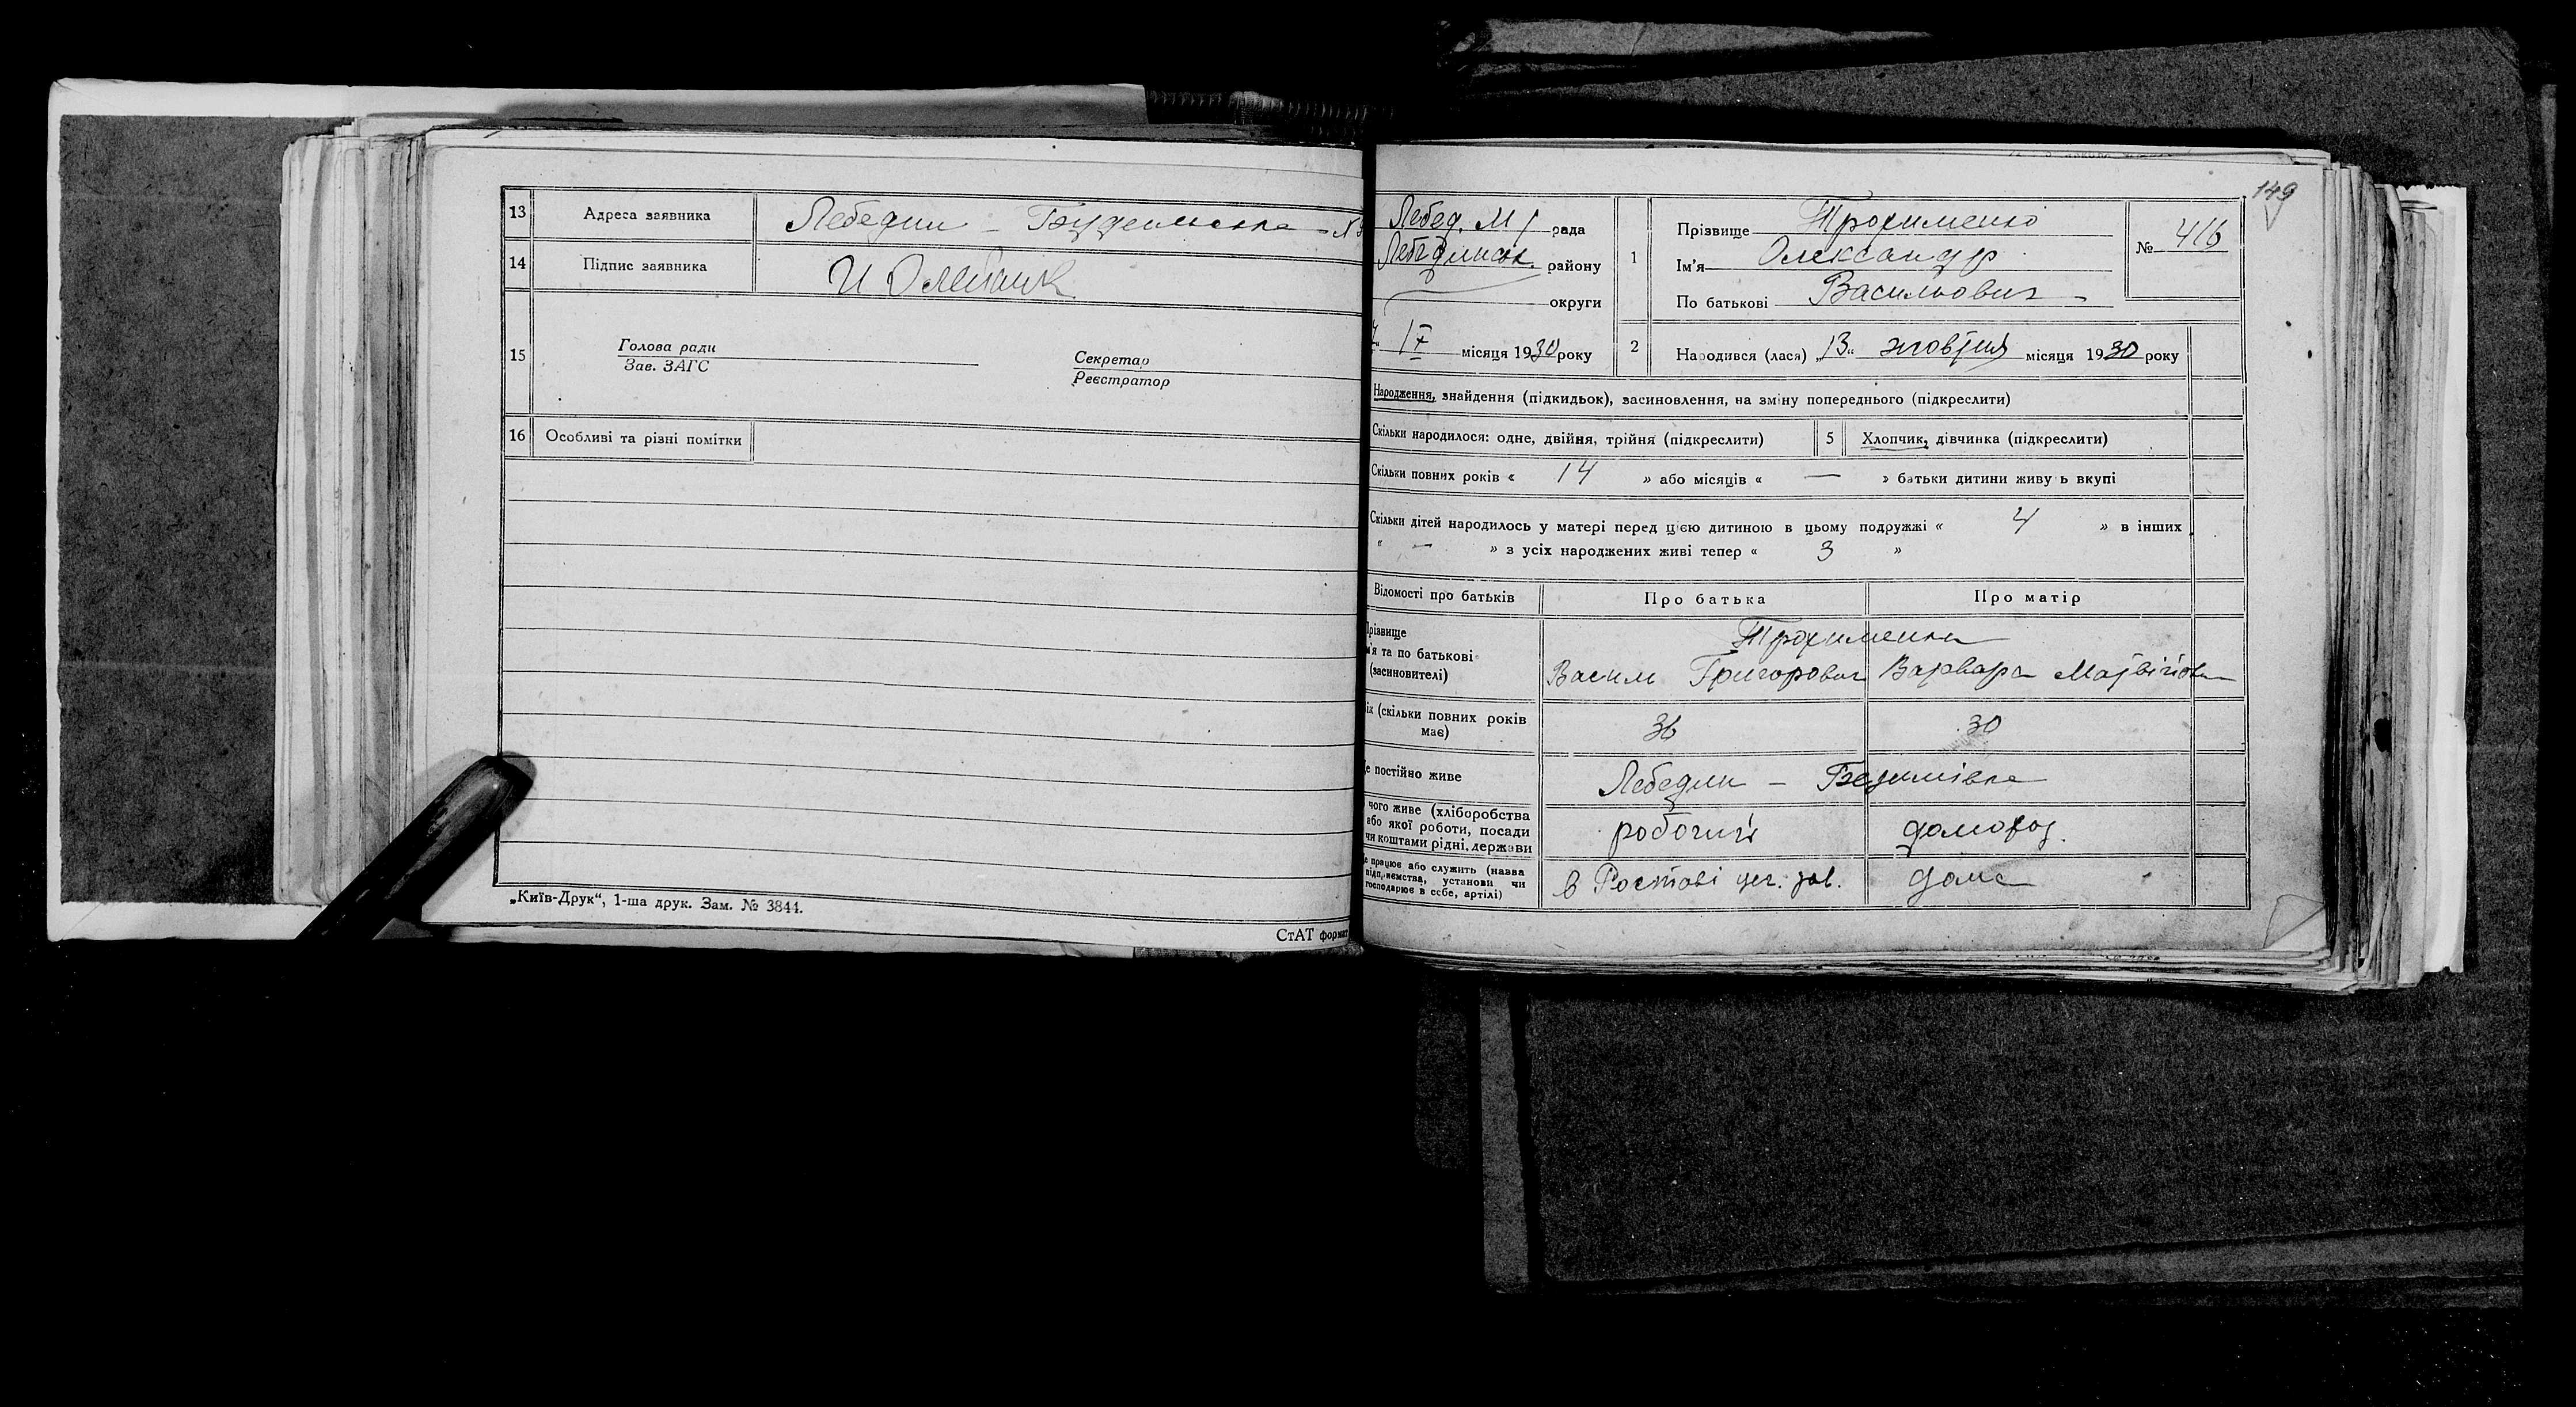 13 Адреса заявника Лебедин –
14 Підпис заявника
15 Голова ради Секретар
Зав. ЗАГС Реєстратор
16 Особливі та різні помітки
„Київ-Друк“, 1-ша друк. Зам. № 3844.
СтАТ формат
149
Лебед. М/ рада
Лебединськ. району
округи
місяця 1930 року
1 Прізвище Трохименко
Ім'я Олександр
По батькові Васильович –
№ 416
2 Народився (лася) „13“ жовтня місяця 1930 року
Народження, знайдення (підкидьок), засиновлення, на зміну попереднього (підкреслити)
Скільки народилося: одне, двійня, трійня (підкреслити) 5 Хлопчик, дівчинка (підкреслити)
Скільки повних років « 14 » або місяців « — » батьки дитини живу ь вкупі
Скільки дітей народилось у матері перед цією дитиною в цьому подружжі « 4 » в інших
« – » з усіх народжених живі тепер « 3 »
Відомості про батьків Про батька Про матір
Прізвище
м'я та по батькові
(засиновителі)
Трохименки
Василь Григорович Варвара Матвіївна
ік (скільки повних років
має)
36 30
е постійно живе Лебедин –
чого живе (хліборобства
або якої роботи, посади
чи коштами рідні, держави
робочий домогос.
е працює або служить (назва
підприємства, установи чи
господарює в себе, артілі)
в Ростові цег. зав. дома